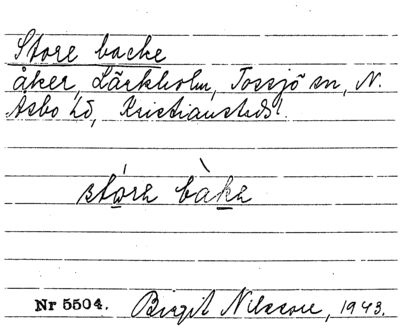 Store backe
åker, Lärkholm, Tossjö sn, N.
Åsbo hd, Kristianstads l.
stóre bàke
Nr 5504. Birgit Nilsson, 1943.